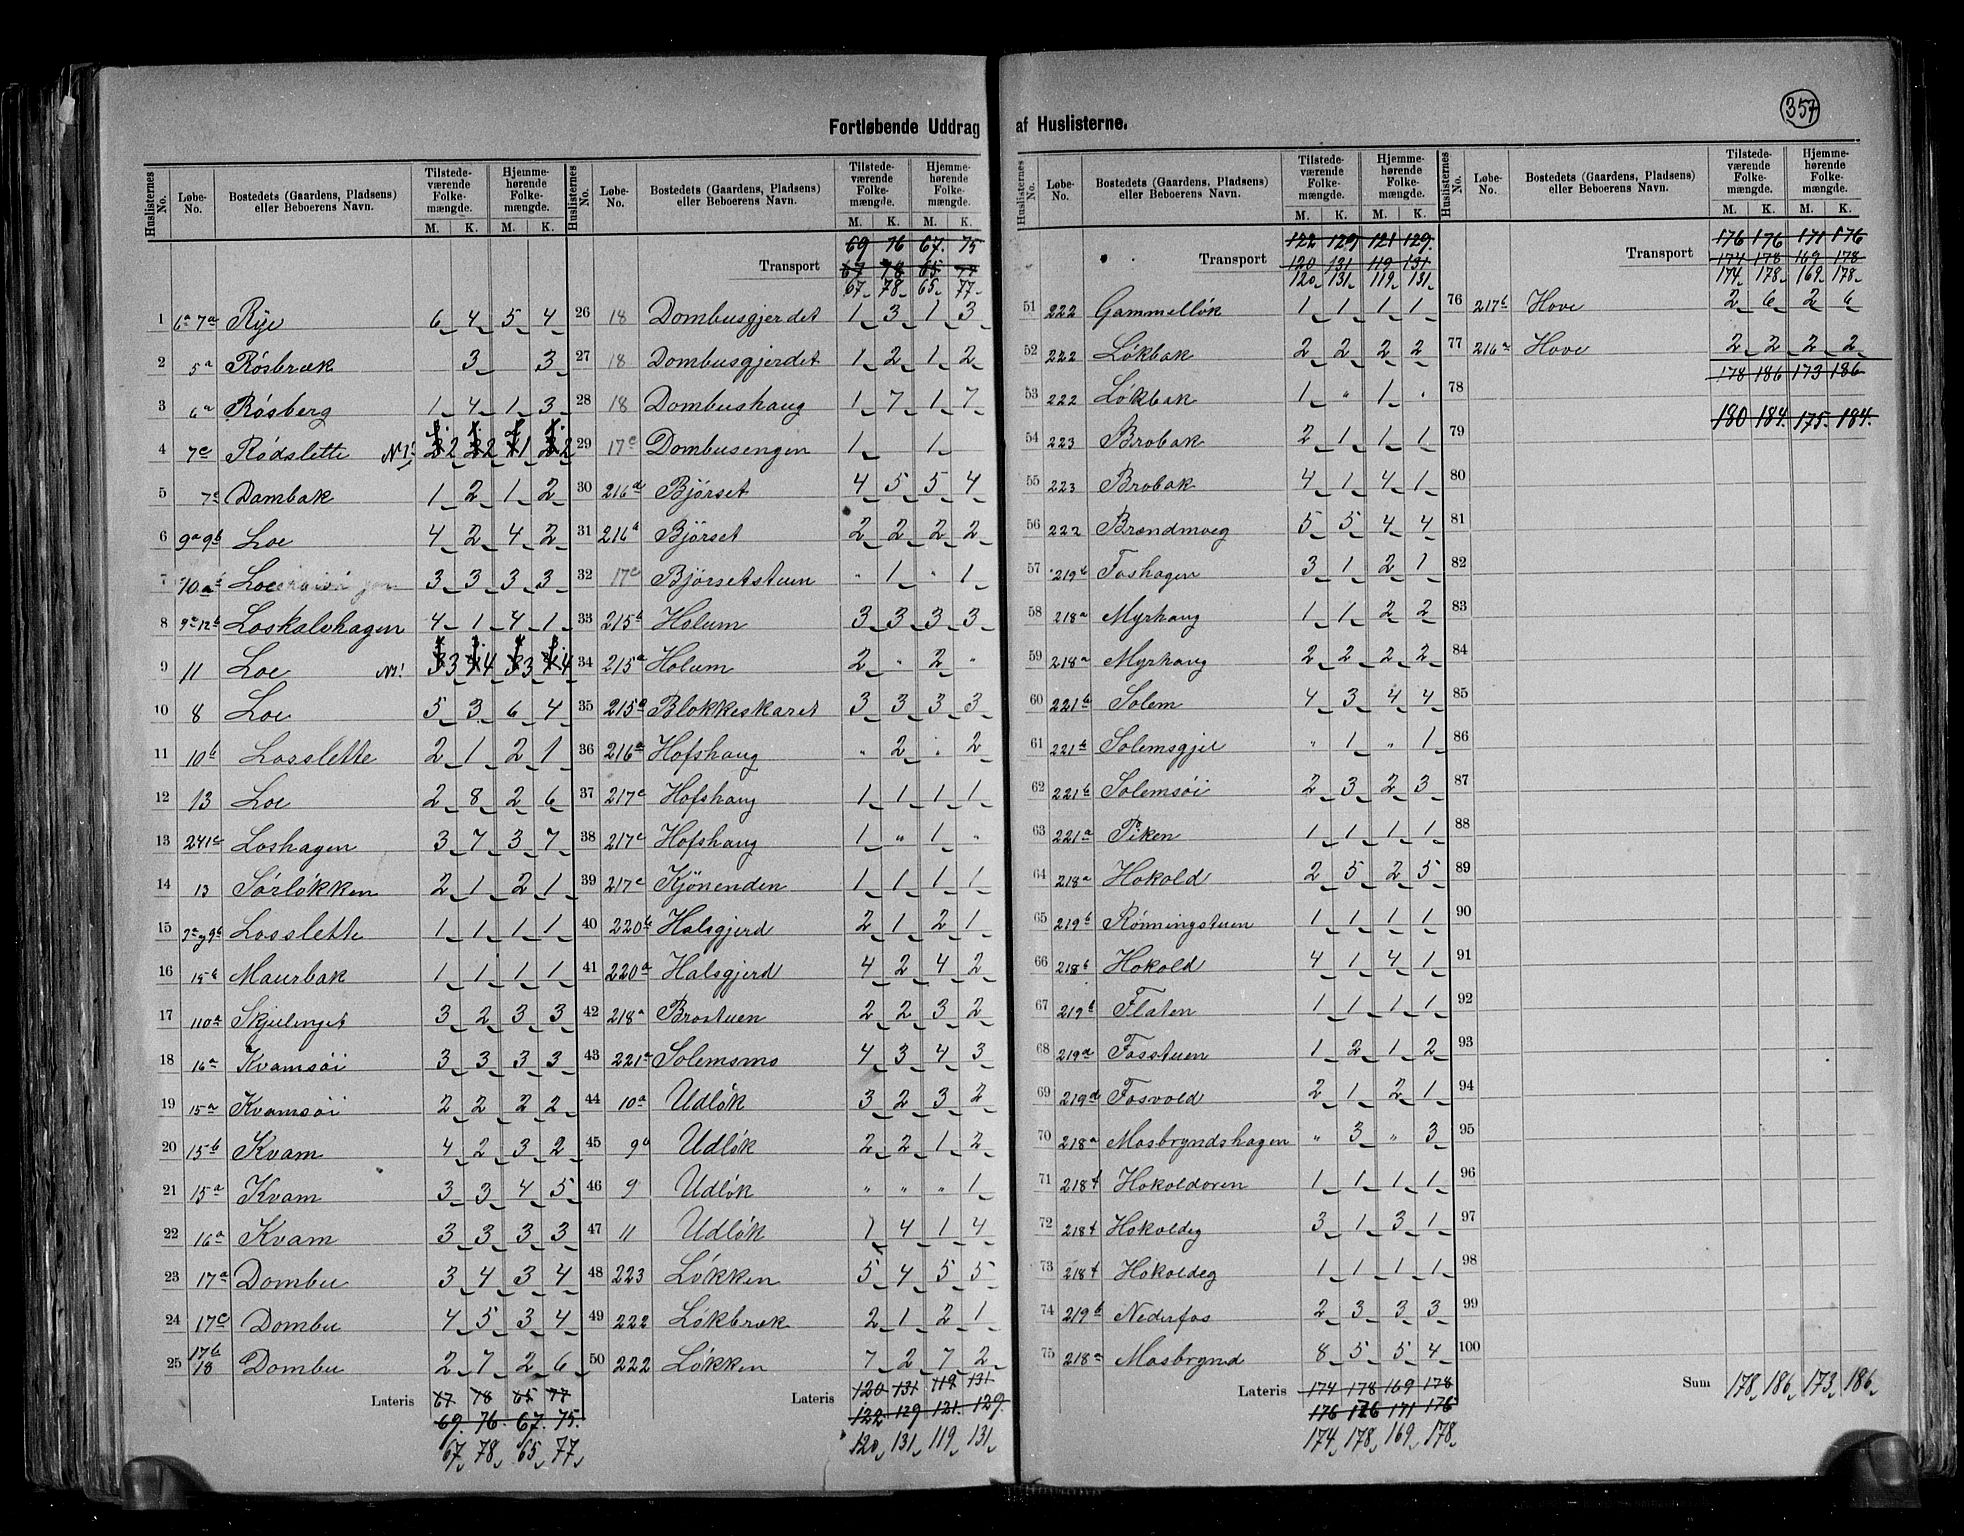 357
Fortløbende Uddrag af Huslisterne.
Huslisternes No. | Løbe-No. | Bostedets (Gaardens, Pladsens) eller Beboerens Navn. | Tilstede-værende Folke-mængde. M. K. | Hjemme-hørende Folke-mængde. M. K.
1 6a 7a Rye 6 4 5 4
2 5a Røsbræk 3 3
3 6a Røsberg 1 4 1 3
4 7c Rødslette N! 2 2 1 2
5 7c Dambak 1 2 1 2
6 9a 9b Loe 4 2 4 2
7 10a Loe 3 3 3 3
8 9a 12b Loskalehagen 4 1 4 1
9 11 Loe N! 3 4 3 4
10 8 Loe 5 3 6 4
11 10b Losslette 2 1 2 1
12 13 Loe 2 8 2 6
13 241c Loshagen 3 7 3 7
14 13 Sørløkken 2 1 2 1
15 Losslette 1 1 1 1
16 15b Maurbak 1 1 1 1
17 110a Skjulinget 3 2 3 3
18 16a Kvamsøi 3 3 3 3
19 15a Kvamsøi 2 2 2 2
20 15b Kvam 4 2 3 2
21 15a Kvam 3 3 4 5
22 16a Kvam 3 3 3 3
23 17a Dombu 3 4 3 4
24 17c Dombu 4 5 3 4
25 17b 18 Dombu 2 7 2 6
Lateris 67 78 65 77
69. 76. 67. 75.
67 78 65 77
Huslisternes No. | Løbe-No. | Bostedets (Gaardens, Pladsens) eller Beboerens Navn. | Tilstede-værende Folke-mængde. M. K. | Hjemme-hørende Folke-mængde. M. K.
69 76 67. 75
Transport 67 78 65 77
67 78 65 77
26 18 Dombusgjerdet 1 3 1 3
27 18 Dombusgjerdet 1 2 1 2
28 18 Dombushaug 1 7 1 7
29 17c Dombusengen 1 1
30 216d Bjørset 4 5 5 4
31 216a Bjørset 2 2 2 2
32 17c Bjørsetstuen " 1 " 1
33 215b Holum 3 3 3 3
34 215a Holum 2 " 2 "
35 215a Blokkeskaret 3 3 3 3
36 216a Hofshaug " 2 " 2
37 217c Hofshaug 1 1 1 1
38 217c Hofshaug 1 " 1 "
39 217c Kjønenden 1 1 1 1
40 220b Halsgjerd 2 1 2 1
41 220a Halsgjerd 4 2 4 2
42 218a Brostuen 2 2 3 2
43 221a Solemsmo 4 3 4 3
44 10a Udløk 3 2 3 2
45 9a Udløk 2 2 1 2
46 9 Udløk " " " 1
47 11 Udløk 1 4 1 4
48 223 Løkken 5 4 5 5
49 222 Løkbræk 2 1 2 1
50 222 Løkken 7 2 7 2
Lateris 120 131 119 131
122 129 121. 129.
120 131 119 131
Huslisternes No. | Løbe-No. | Bostedets (Gaardens, Pladsens) eller Beboerens Navn. | Tilstede-værende Folke-mængde. M. K. | Hjemme-hørende Folke-mængde. M. K.
122 129 121 129.
Transport 120 131 119 131
120 131 119 131
51 222 Gammelløk 1 1 1 1
52 222 Løkbak 2 2 2 2
53 222 Løkbak 1 " 1 "
54 223 Brobak 2 1 1 1
55 223 Brobak 4 1 4 1
56 222 Brændmoeg 5 5 4 4
57 219b Foshagen 3 1 2 1
58 218a Myrhaug 1 1 2 2
59 218a Myrhaug 2 2 2 2
60 221b Solem 4 3 4 4
61 221b Solemsgjel " 1 " 1
62 221b Solemsøi 2 3 2 3
63 221a Piken 1 1 1 1
64 218a Hokold 2 5 2 5
65 219b Rønningstuen 1 1 1 1
66 218b Hokold 4 1 4 1
67 219b Flaten 1 1 1 1
68 219a Fosstuen 1 2 1 2
69 219d Fosvold 2 1 2 1
70 218a Mosbryndshagen " 3 " 3
71 218f Hokoldoren 1 1 1 1
72 218f Hokoldeg 3 1 3 1
73 218f Hokoldeg 1 1 1 1
74 219b Nederfos 2 3 3 3
75 218a Mosbrynd 8 5 5 4
Lateris 174 178 169 178
176 176 171 176
174 178 169 178
Huslisternes No. | Løbe-No. | Bostedets (Gaardens, Pladsens) eller Beboerens Navn. | Tilstede-værende Folke-mængde. M. K. | Hjemme-hørende Folke-mængde. M. K.
176 176 171 176
Transport 174 178 169 178
174 178 169 178
76 217b Hove 2 6 2 6
77 216a Hove 2 2 2 2
78 178 186 173 186
79 180 184. 175. 184.
80
81
82
83
84
85
86
87
88
89
90
91
92
93
94
95
96
97
98
99
100
Sum 178 186 173 186